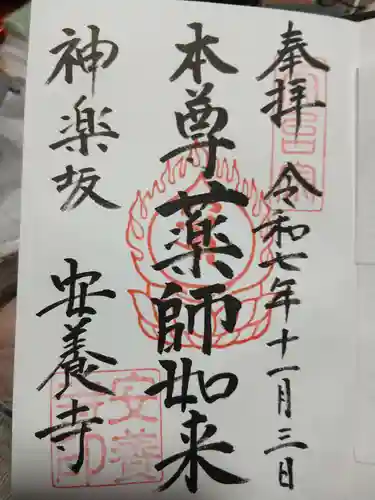 奉拝 令和七年十一月三日
本尊薬師如来
神楽坂 安養寺
安養寺印